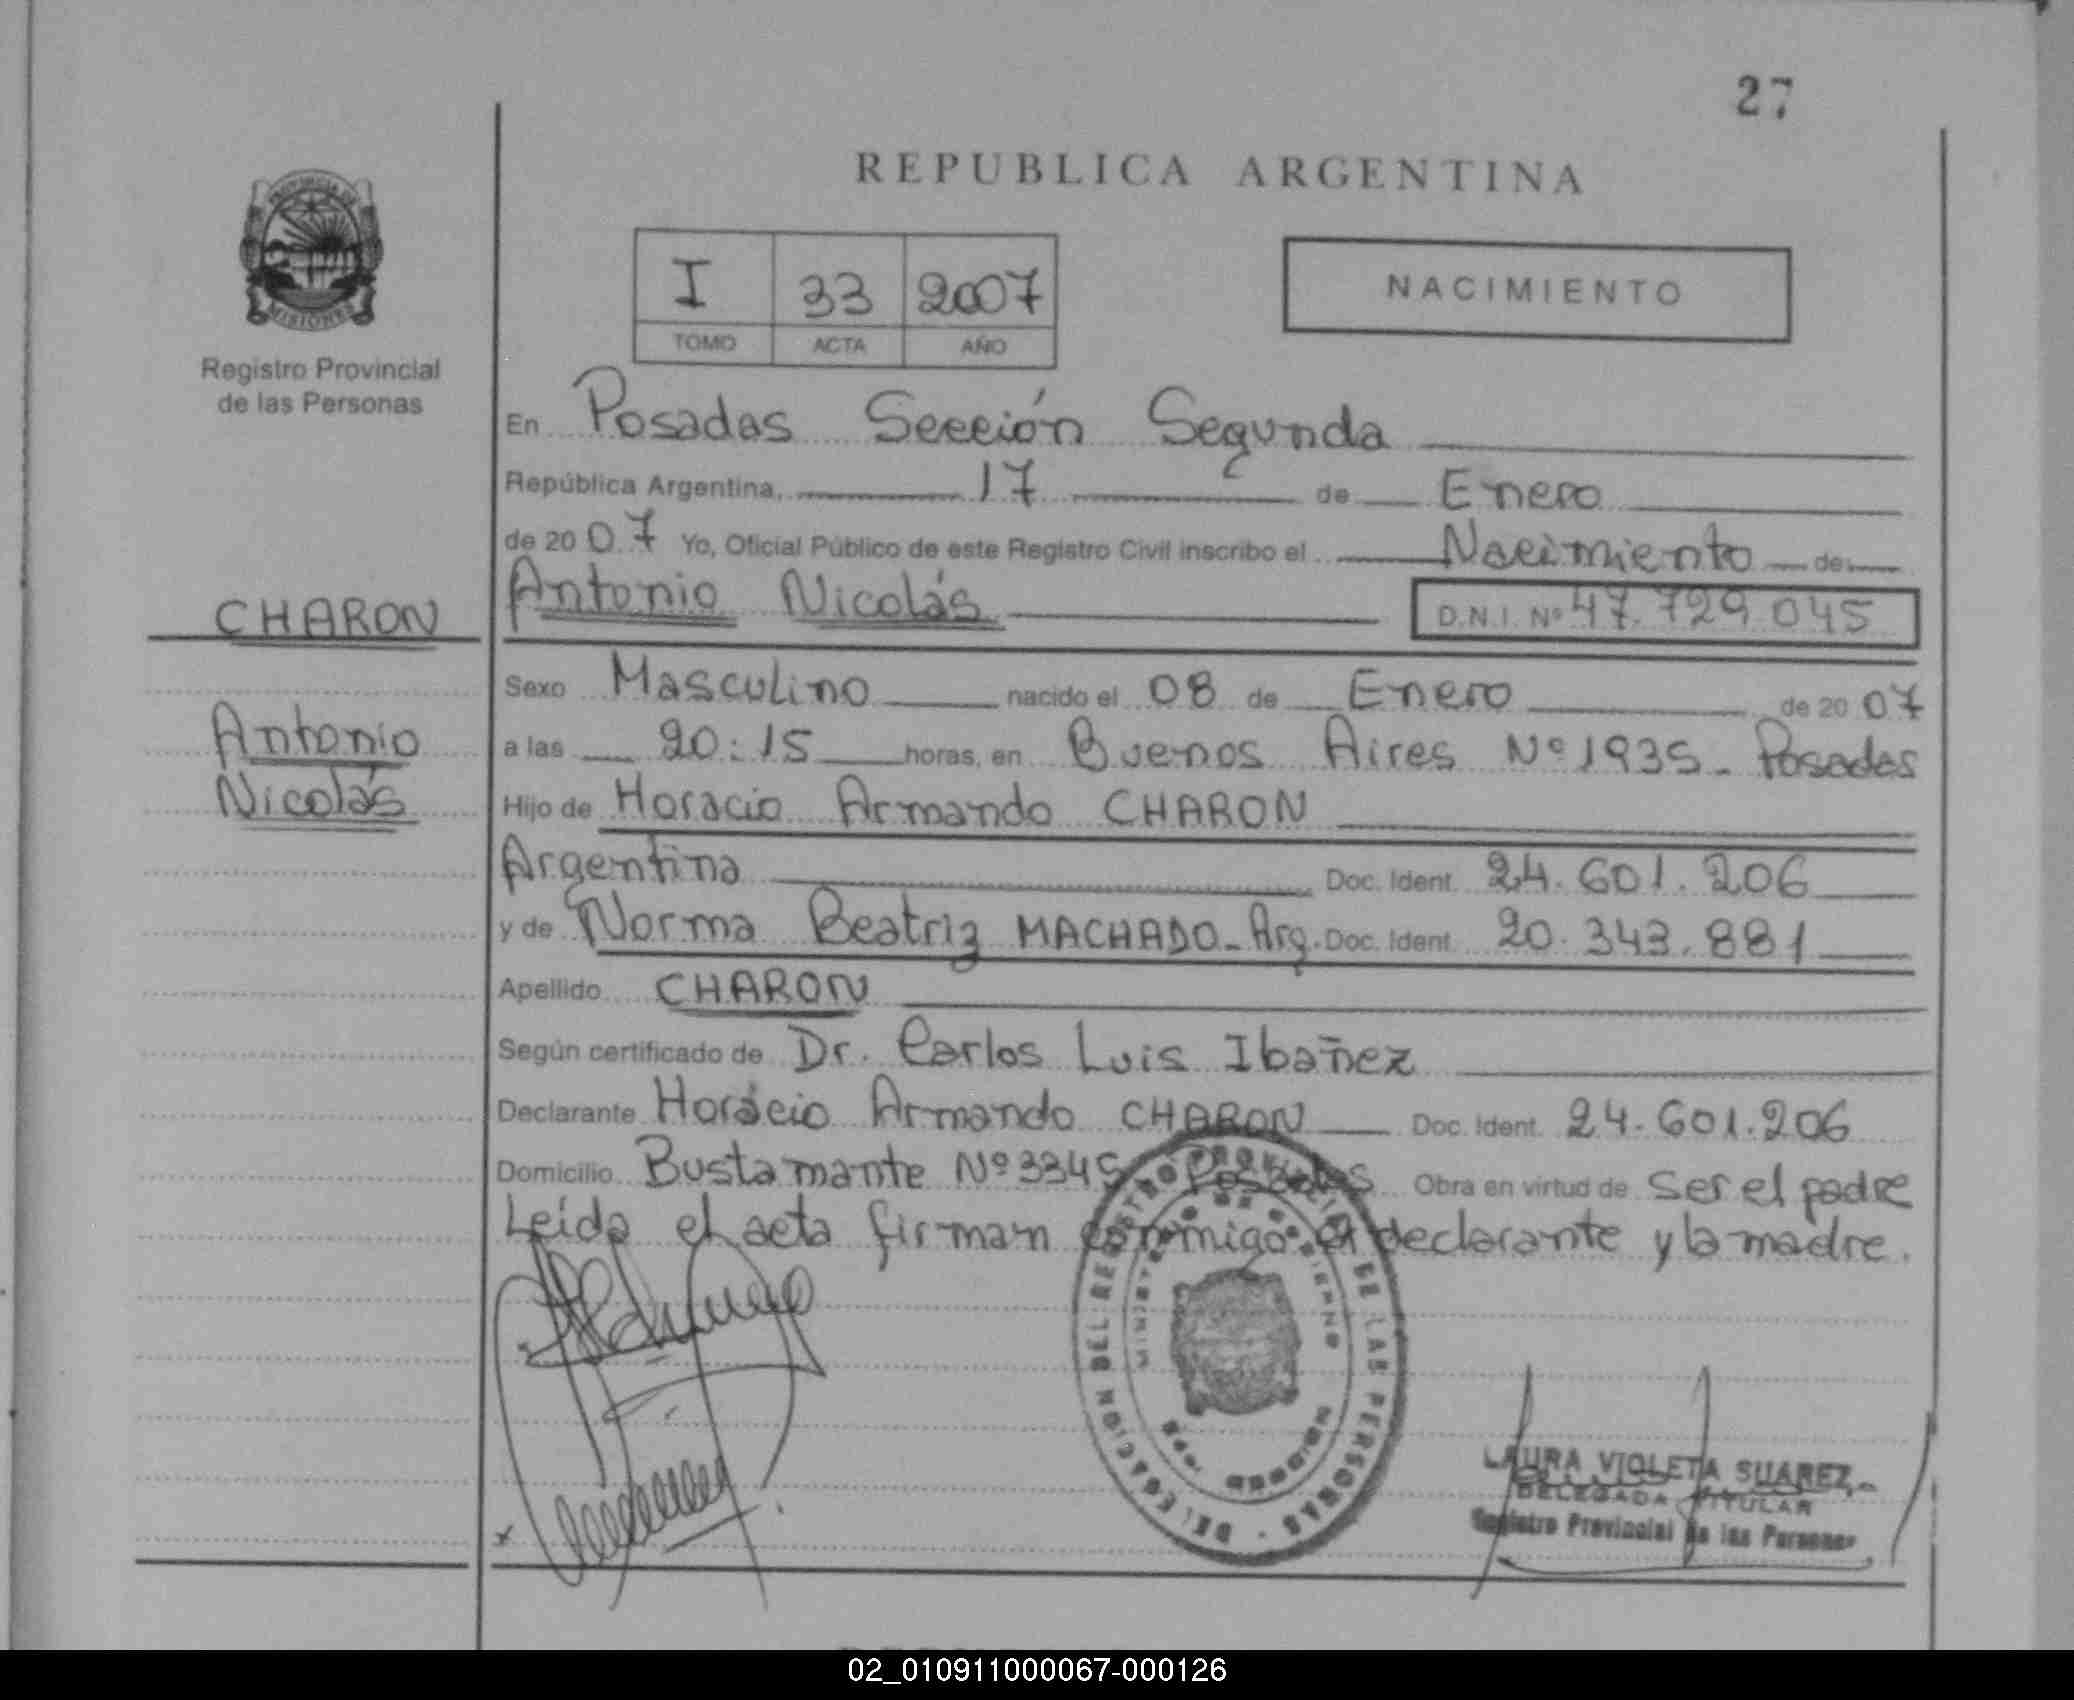 27
REPUBLICA ARGENTINA
PROVINCIA DE
MISIONES
Registro Provincial
de las Personas
I 33 2007
TOMO ACTA AÑO
NACIMIENTO
En Posadas Sección Segunda
República Argentina, 17 de Enero
de 2007 Yo, Oficial Público de este Registro Civil inscribo el Nacimiento de
CHARON
Antonio Nicolás D.N.I. Nº 47.729.045
Sexo Masculino nacido el 08 de Enero de 2007
Antonio
a las 20:15 horas, en Buenos Aires Nº 1935 - Posadas
Nicolás
Hijo de Horacio Armando CHARON
Argentina Doc. Ident. 24.601.206
y de Norma Beatriz MACHADO - Arg. Doc. Ident. 20.343.881
Apellido CHARON
Según certificado de Dr. Carlos Luis Ibañez
Declarante Horacio Armando CHARON Doc. Ident. 24.601.206
Domicilio Bustamante Nº 3345 - Posadas Obra en virtud de ser el padre
Leída el acta firman conmigo el declarante y la madre.
DELEGACION DEL REGISTRO PROVINCIAL DE LAS PERSONAS
MINISTERIO DE GOBIERNO
LAURA VIOLETA SUAREZ
DELEGADA TITULAR
Registro Provincial de las Personas
02_010911000067-000126